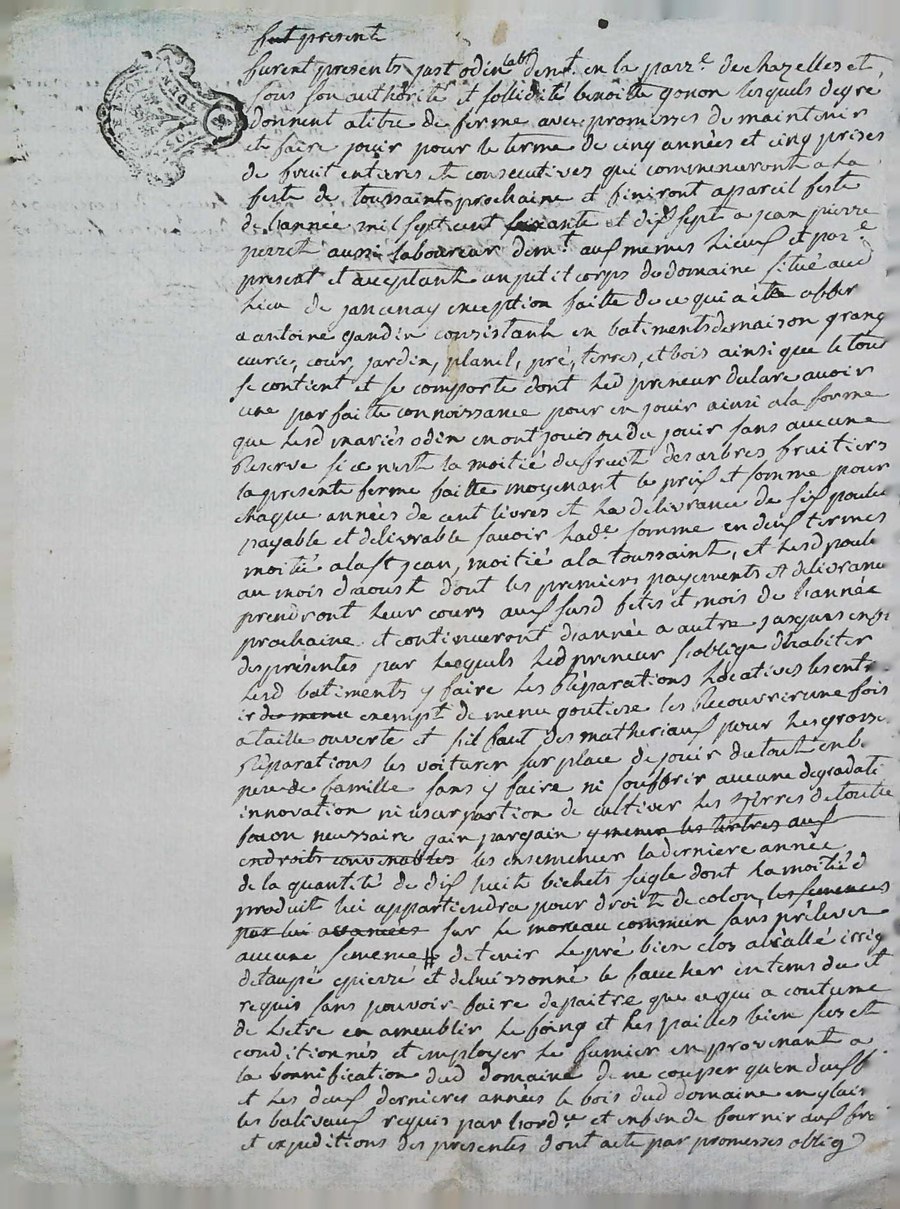 fut present
furent presents just odin lab.r dem.t en la parr.e de chazelles et
sous son authorité et sollidité benoitte gonon lesquels de gré
donnent a titre de ferme avec promesses de maintenir
et faire jouir pour le terme de cinq années et cinq prises
de fruit entieres et consecutives qui commenceront a la
feste de toussaint prochaine et finiront a pareil feste
de l'année mil sept cent soixante et dix sept a jean pierre
perret aussi laboureur dem.t aux memes lieux et par.e
present et acceptant un petit corps de domaine situé aud
lieu de jancenay exception faitte de ce qui a été
a antoine gandin consistant en batiments de maison grang
ecurie, cour, jardin, planil, pré, terres, et bois ainsi que le tout
se contient et se comporte dont led preneur declare avoir
une parfaitte connoissance pour en jouir ainsi a la forme
que lesd mariés odin en ont jouis ou du jouir sans aucune
reserve si ce n'est la moitié du fruit des arbres fruitiers
la presente ferme faitte moyenant le prix et somme pour
chaque années de cent livres et la delivrance de six poulle
payable et delivrable savoir lad.e somme en deux termes
moitié a la st jean, moitié a la toussaint, et lesd poule
au mois d'aoust dont les premiers payements et delivranc
prendront leur cours aux susd fetes et mois de l'année
prochaine et continueront d'année a autre jusques en fi
des présentes par lesquels led preneur s'oblige d'habiter
lesd batiments y faire les réparations locatives les entre
ir de menu exempt de menu goutiere les recouvrir une fois
a taille ouverte et s'il faut des matheriaux pour les grosse
réparations les voiturer sur place de jouir du tout en b
pere de famille sans y faire ni souffrir aucune degradati
innovation ni usurpation de cultiver les terres de toutte
facon necessaire gain par gain y mener les tertres aux
endroits convenables les ensemencer la derniere année
de la quantité de dix huit bichets seigle dont la moitié d
produit lui appartiendra pour droit de colon, les semences
par lui avancées sur le morceau commun sans prélever
aucune semence # de tenir le pré bien clos
detaupé epierré et debuissonné le faucher en tems du et
requis sans pouvoir faire depaitre que ce qui a coutume
de l'etre en ameublir le foing et les pailles bien secs et
conditionnés et employer le fumier en provenant a
la bonnification dud domaine de ne couper qu'en deux f
et les deux dernieres années le bois dud domaine en
les balivaux requis par l'ord.ce et enfin de fournir aux frai
et expeditions des presentes dont acte par promesses oblig